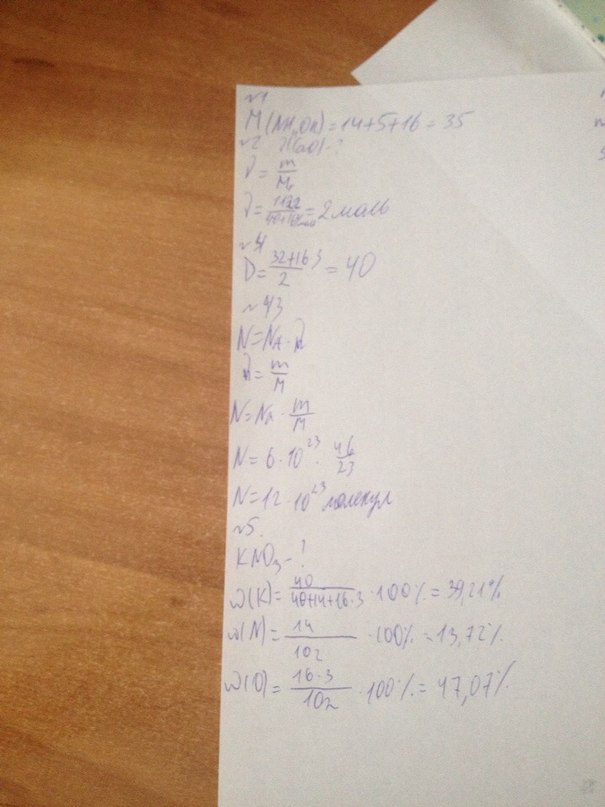 №1
M(NH₄OH) = 14+5+16 = 35
№2 ν(CaO) - ?
ν = m/M
ν = 112г/40+16г/моль = 2 моль
№4
D = 32+16·3/2 = 40
№3
N = Nₐ · ν
ν = m/M
N = Nₐ · m/M
N = 6·10²³ · 46/23
N = 12·10²³ молекул
№5.
KNO₃ - ?
w(K) = 40/40+14+16·3 ·100% = 39,21%
w(N) = 14/102 ·100% = 13,72%
w(O) = 16·3/102 ·100% = 47,07%